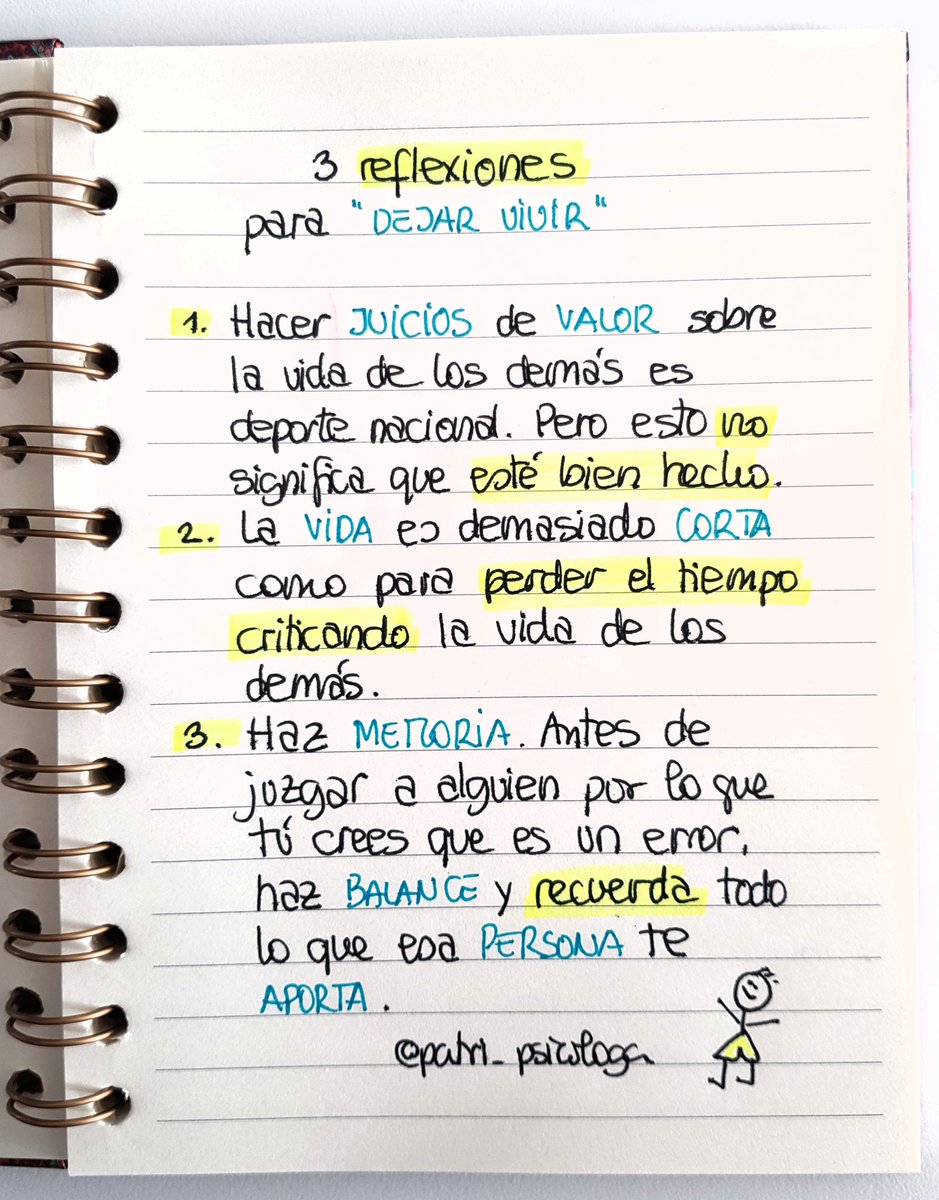 3 reflexiones
para "DEJAR ViViR"
1. Hacer JUiCiOS de VALOR sobre
la vida de los demás es
deporte nacional. Pero esto no
significa que esté bien hecho.
2. La ViDA es demasiado CORTA
como para perder el tiempo
criticando la vida de los
demás.
3. Haz MEMORiA. Antes de
juzgar a alguien por lo que
tú crees que es un error,
haz BALANCE y recuerda todo
lo que esa PERSONA te
APORTA.
@patri_psicologa